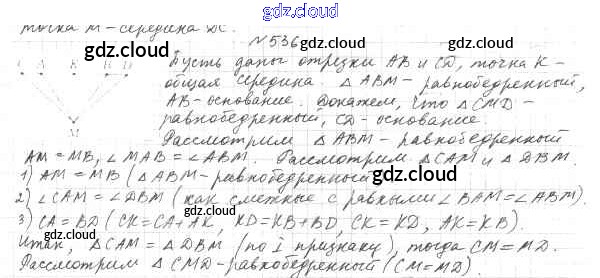 gdz.cloud
точка M - середина DC.
N 536 gdz.cloud
gdz.cloud
Пусть даны отрезки AB и CD, точка K -
C A K B D
общая середина. △ABM - равнобедренный,
AB - основание. Докажем, что △CMD -
равнобедренный, CD - основание.
M
Рассмотрим △ABM - равнобедренный
gdz.cloud gdz.cloud
AM = MB, ∠MAB = ∠ABM. Рассмотрим △CAM и △DBM.
1) AM = MB (△ABM - равнобедренный)
gdz.cloud
2) ∠CAM = ∠DBM (как смежные с равными ∠BAM = ∠ABM).
3) CA = BD (CK = CA + AK, KD = KB + BD, CK = KD, AK = KB).
gdz.cloud gdz.cloud
Итак, △CAM = △DBM (по I признаку), тогда CM = MD.
Рассмотрим △CMD - равнобедренный (CM = MD).
gdz.cloud